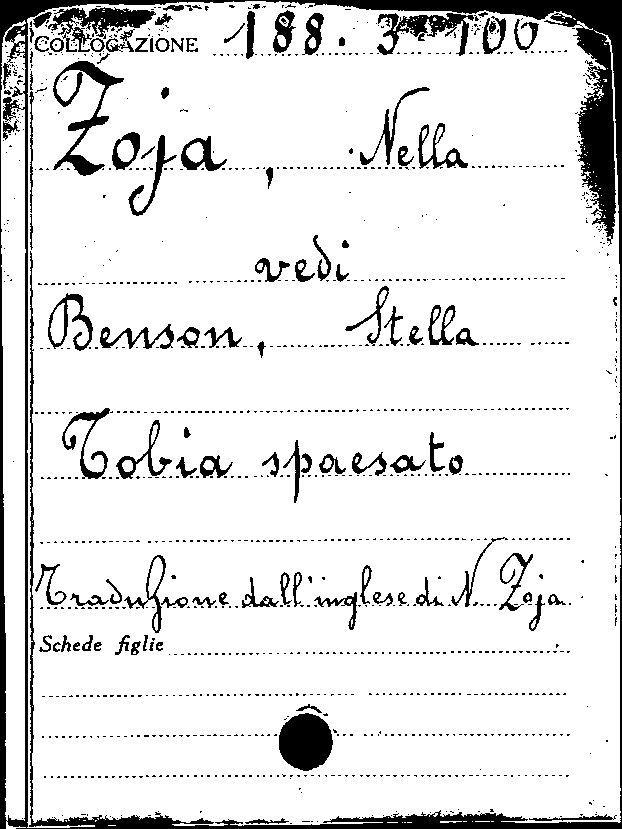 COLLOCAZIONE 188. 3. 100
Zoja, Nella
vedi
Benson, Stella
Tobia spaesato
Traduzione dall'inglese di N. Zoja
Schede figlie